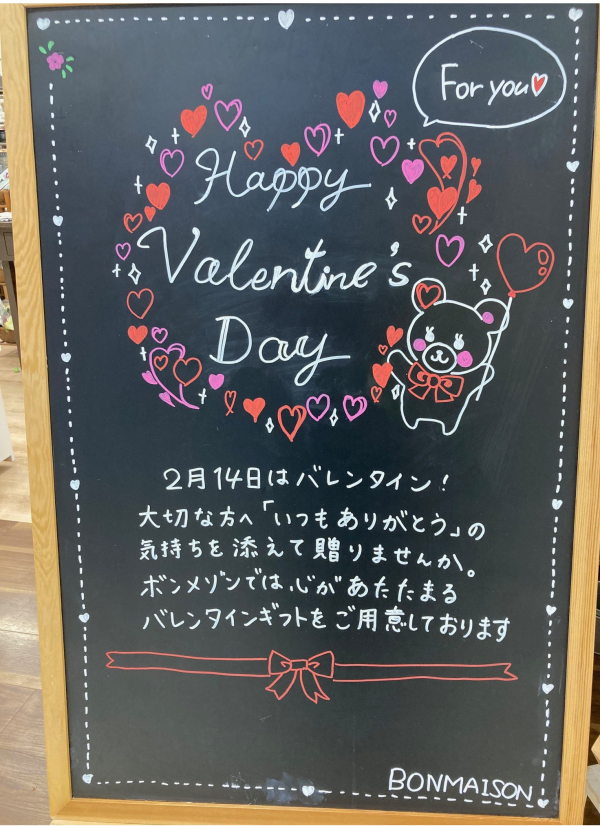 For you
Happy
Valentine's
Day
2月14日はバレンタイン!
大切な方へ「いつもありがとう」の
気持ちを添えて贈りませんか。
ボンメゾンでは、心があたたまる
バレンタインギフトをご用意しております
BONMAISON